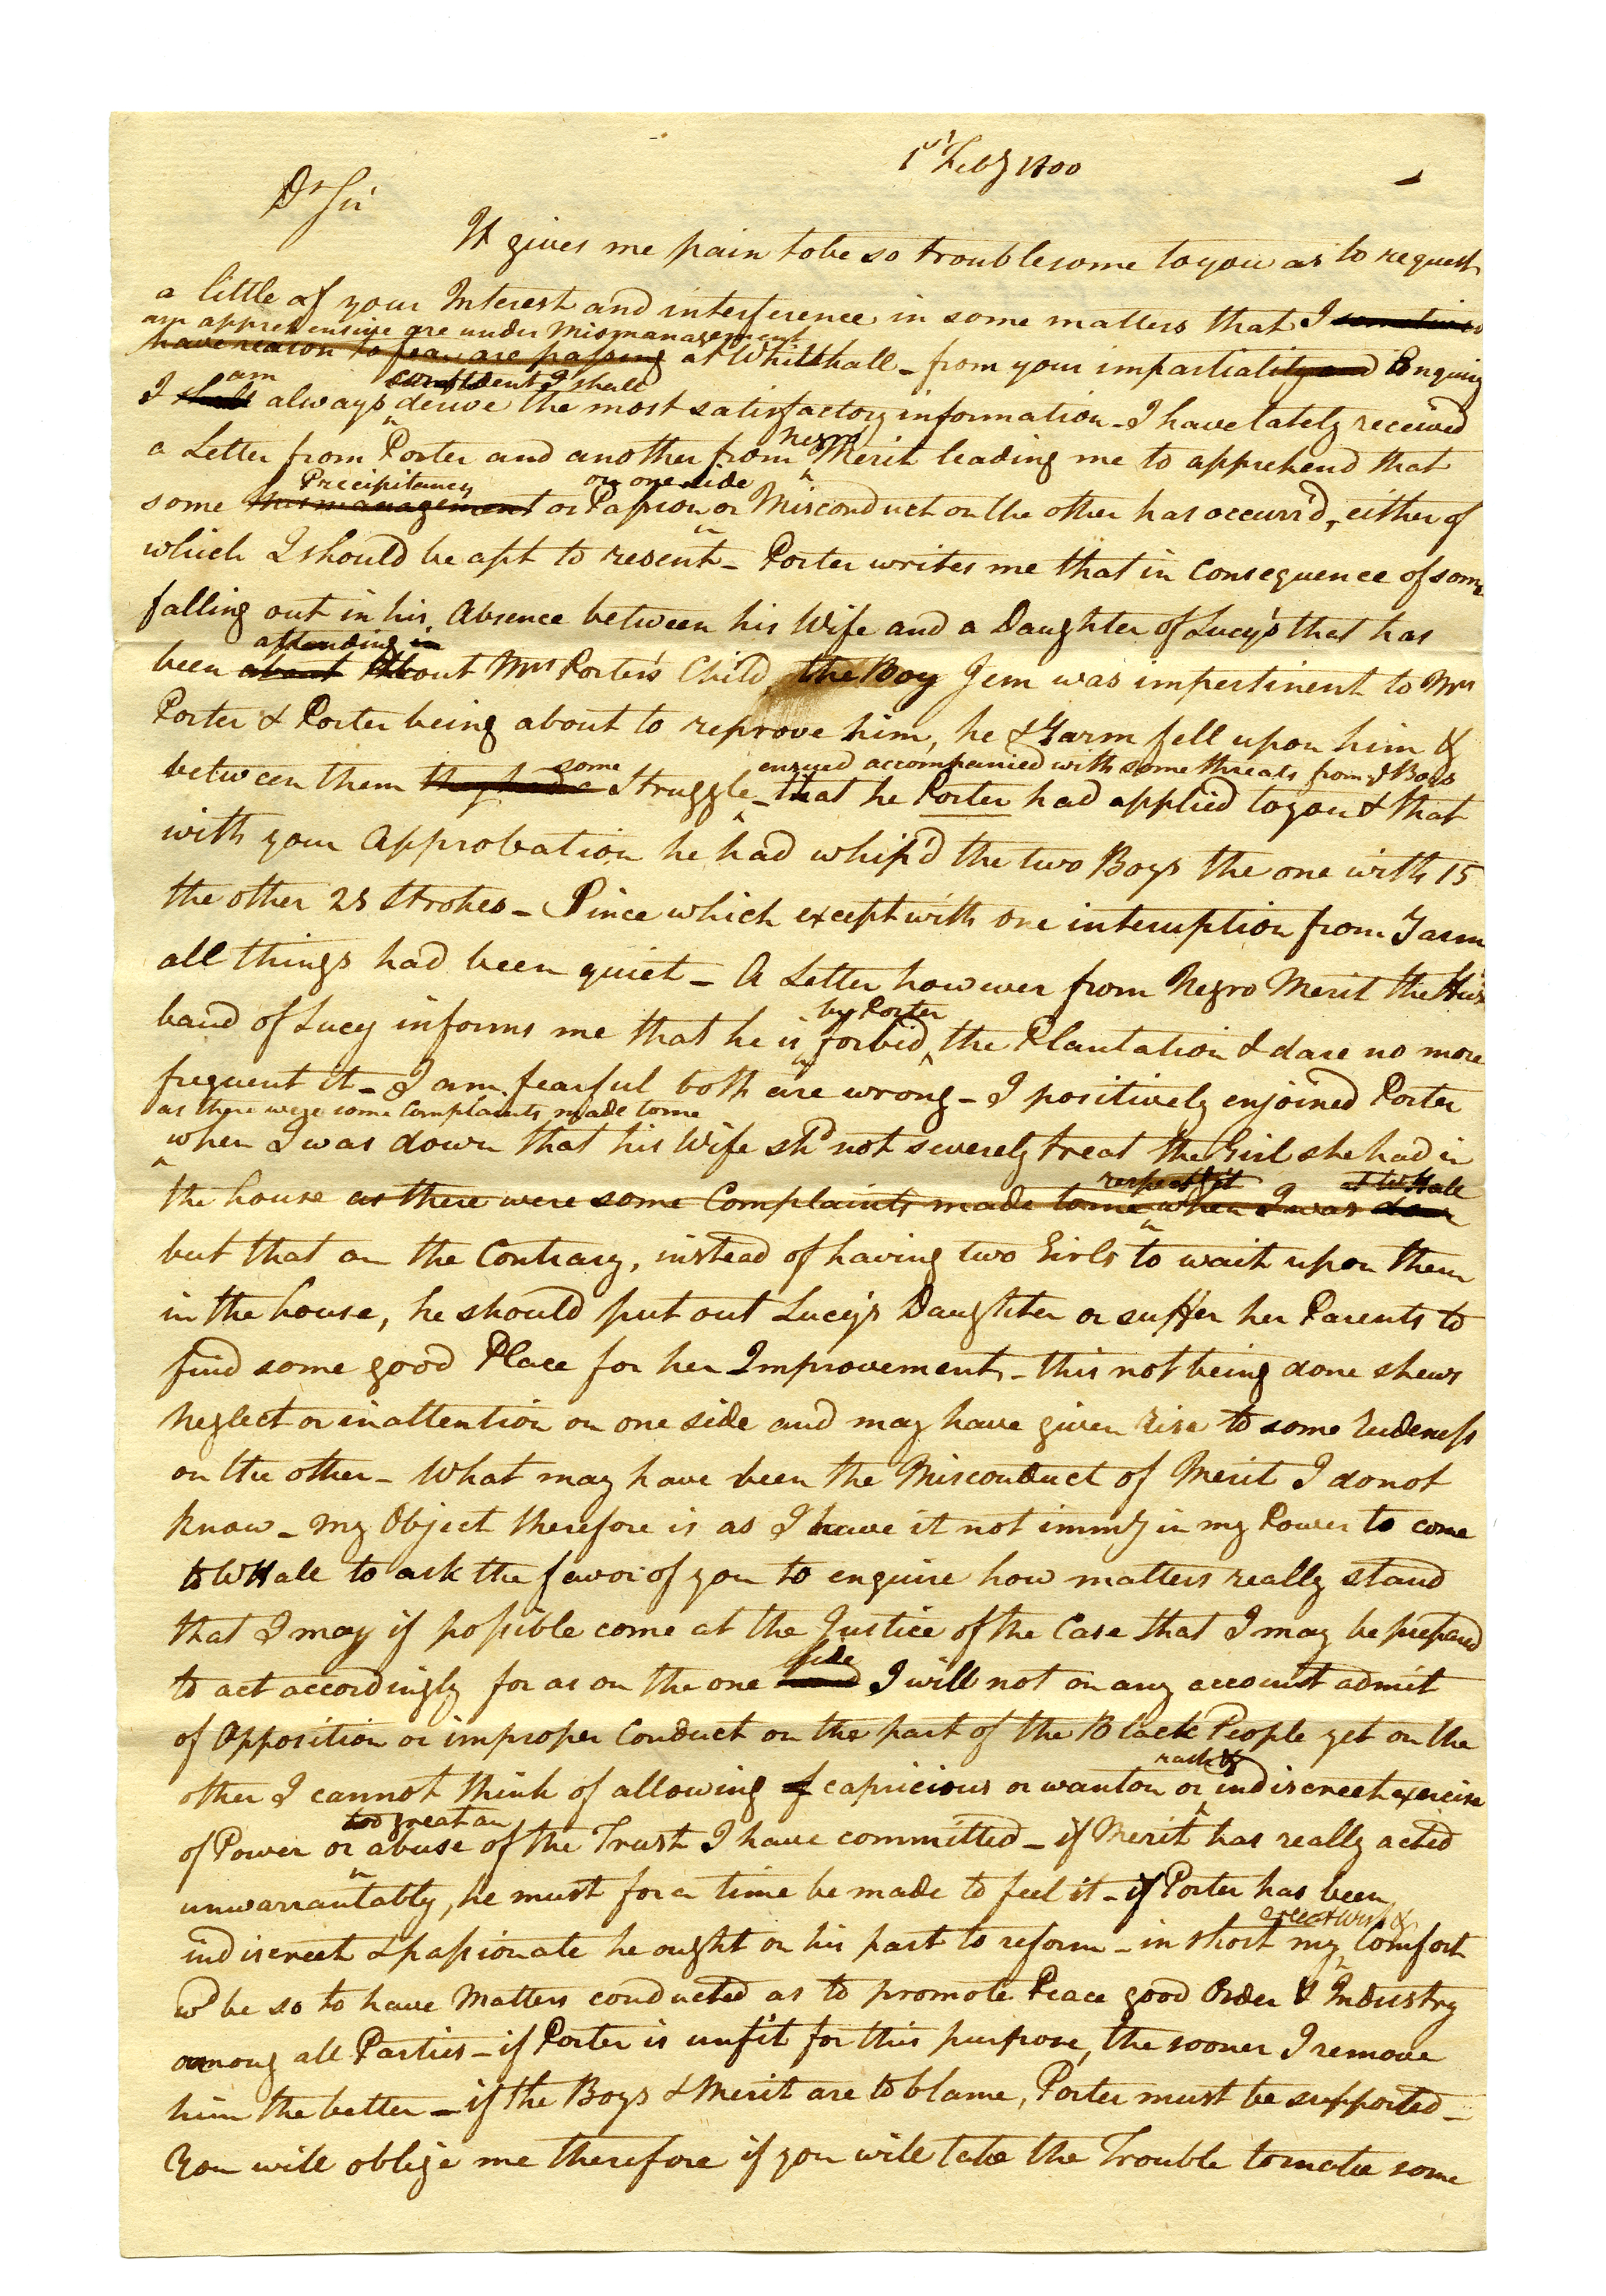 1st Feby 1800
Dr Sir
It gives me pain to be so troublesome to you as to request
a little of your Interest and interference in some matters that I sometimes
am apprehensive are under Mismanagement
have reason to fear are passing at Whitehall - from your impartiality and Enquiry
am confident I shall
I shall always derive the most satisfactory information - I have lately received
negro
a Letter from Porter and another from Merit leading me to apprehend that
Precipitancy on one side
some mismanagement or Passion or Misconduct on the other has occurr'd, either of
which I should be apt to resent - Porter writes me that in Consequence of some
falling out in his Absence between his Wife and a Daughter of Lucy's that has
attending in
been about about Mrs Porter's Child, the Boy Jem was impertinent to Mrs
Porter & Porter being about to reprove him, he & Yarm fell upon him &
some ensued accompanied with some threats from ye Boys
between them they had a Struggle - that he Porter had applied to you & that
with your Approbation he had whip'd the two Boys the one with 15
the other 25 Strokes - Since which except with one interuption from Yarm
all things had been quiet - A Letter however from Negro Merit the Hus
by Porter
band of Lucy informs me that he is forbid the Plantation & dare no more
frequent it - I am fearful both are wrong - I positively enjoined Porter
as there were some Complaints made to me
when I was down that his Wife shd not severely treat the Girl she had in
respectg it at WHall
the house as there were some Complaints made to me when I was down
but that on the Contrary, instead of having two Girls to wait upon them
in the house, he should put out Lucy's Daughter or suffer her Parents to
find some good Place for her Improvement - this not being done shews
neglect or inattention on one side and may have given rise to some rudeness
on the other - What may have been the Misconduct of Merit I do not
know - My Object therefore is as I have it not immy in my Power to come
to WHall to ask the favor of you to enquire how matters really stand
that I may if possible come at the Justice of the Case that I may be prepared
side
to act accordingly for as on the one hand I will not on any account admit
of Opposition or improper Conduct on the part of the Black People yet on the
rash &
other I cannot think of allowing of capricious or wanton or indiscreet exercise
too great an
of Power or abuse of the Trust I have committed - if Merit has really acted
unwarrantably, he must for a time be made to feel it - if Porter has been
great Wish &
indiscreet & passionate he ought on his part to reform - in short my Comfort
wd be so to have Matters conducted as to promote Peace good Order & Industry
among all Parties - if Porter is unfit for this purpose, the sooner I remove
him the better - if the Boys & Merit are to blame, Porter must be supported -
You will oblige me therefore if you will take the Trouble to make some